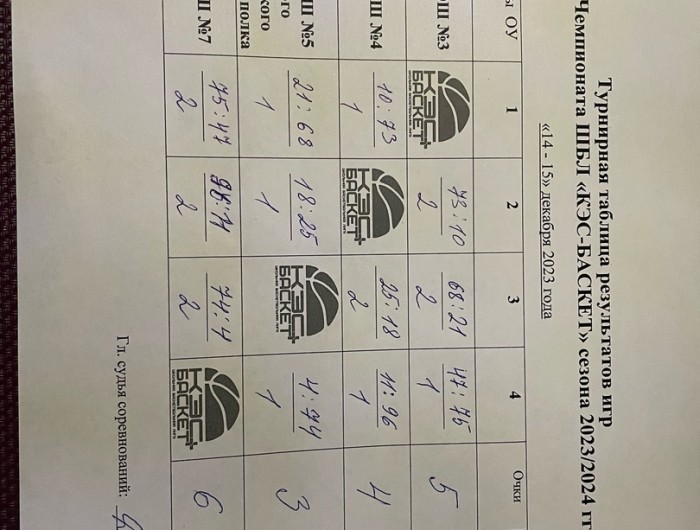 Турнирная таблица результатов игр
Чемпионата ШБЛ «КЭС-БАСКЕТ» сезона 2023/2024 гг
«14 - 15» декабря 2023 года
ОУ 1 2 3 4 Очки
№3 КЭС БАСКЕТ 73:10 68:21 47:75 5
2 2 1
№4 10:73 КЭС БАСКЕТ 25:18 11:96 4
1 2 1
№5 21:68 18:25 КЭС БАСКЕТ 4:74 3
полка 1 1 1
№7 75:47 96:11 74:4 КЭС БАСКЕТ 6
2 2 2
Гл. судья соревнований: